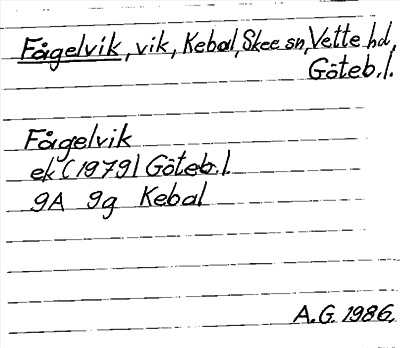 Fågelvik, vik, Kebal, Skee sn, Vette hd,
Göteb.l.
Fågelvik
ek (1979) Göteb.l.
9A 9g Kebal
A.G. 1986.